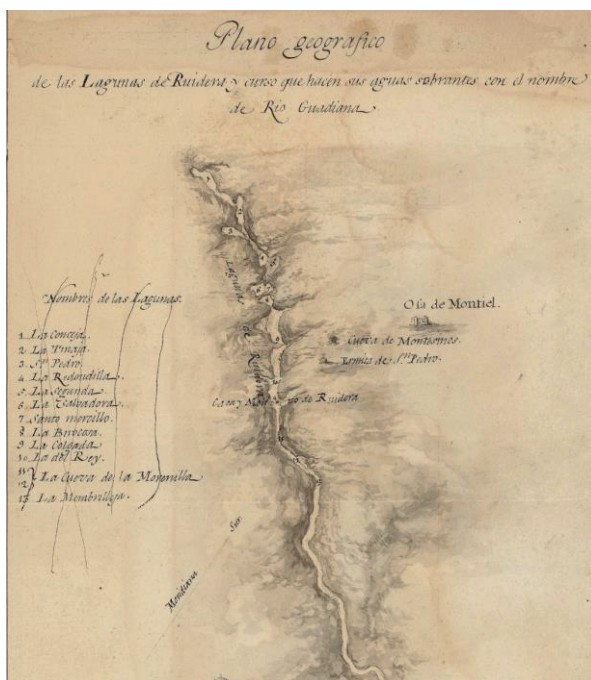 Plano geografico
de las Lagunas de Ruidera y curso que hacen sus aguas sobrantes con el nombre
de Rio Guadiana.
Lagunas de Ruidera
Nombres de las Lagunas.
1 La Conceja.
2 La Tinaja.
3 Sn. Pedro.
4 La Redondilla.
5 La Segunda.
6 La Salvadora.
7 Santo morcillo.
8 La Batecana.
9 La Colgada
10 La del Rey.
11
12 La Cueva de la Morenilla
13 La Membrilleja.
Osa de Montiel.
Cueva de Montesinos.
Ermita de Sn. Pedro.
Casa y de Ruidera
Meridiana Sur